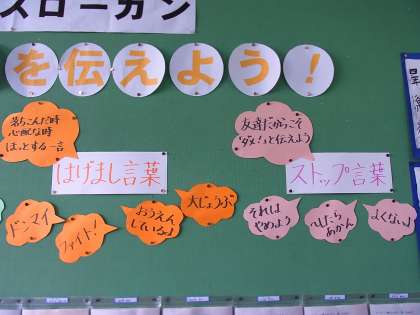 スローガン
を伝えよう!
落ちこんだ時
心配な時
ほっとする一言
友達だからこそ
「ダメ!」と伝えよう
はげまし言葉
ストップ言葉
ドンマイ
ファイト!
おうえん
しているよ
大じょうぶ
それは
やめよう
したら
あかん
よくないよ